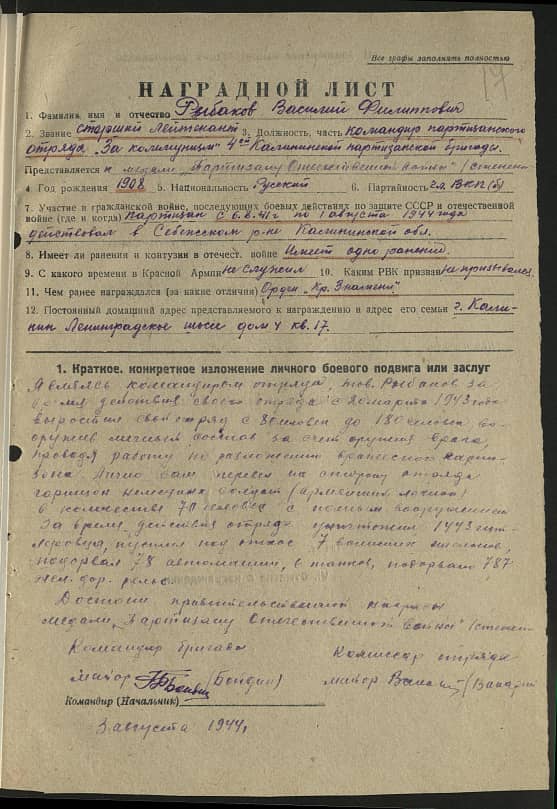 Все графы заполнять полностью
17
НАГРАДНОЙ ЛИСТ
1. Фамилия, имя и отчество Рыбаков Василий Филиппович
2. Звание старший Лейтенант 3. Должность, часть командир партизанского
отряда "За коммунизм" 4ой Калининской партизанской бригады.
Представляется к медали "Партизану Отечественной войны" I степени
4. Год рождения 1908 5. Национальность Русский 6. Партийность чл. ВКП(б)
7. Участие в гражданской войне, последующих боевых действиях по защите СССР и отечественной
войне (где и когда) Партизан с 6.8.41г по 1 августа 1944 года
действовал в Себежском р-не Калининской обл.
8. Имеет ли ранения и контузии в отечеств. войне Имеет одно ранение.
9. С какого времени в Красной Армии не служил 10. Каким РВК призван не призывался
11. Чем ранее награждался (за какие отличия) Орден "Кр. Знамени"
12. Постоянный домашний адрес представляемого к награждению и адрес его семьи г. Кали-
нин Ленинградское шоссе дом 4 кв. 17.
1. Краткое, конкретное изложение личного боевого подвига или заслуг
Являясь командиром отряда, тов. Рыбаков за
время действия своего отряда с 20 марта 1943 года
вырастил свой отряд с 8 человек до 180 человек во-
оружив личный состав за счет оружия врага,
проводя работу по разложению вражеского гарни-
зона. Лично сам перевел на сторону отряда
гарнизон немецких солдат
в количестве 70 человек с полным вооружением
За время действия отряда уничтожено 1443 гит-
леровца, пустил под откос 7 воинских эшелонов,
подорвал 78 автомашин, 6 танков, подорвано 787
жел. дор. рельс.
Достоин правительственной награды
медали "Партизану Отечественной войны" I степени
Командир бригады
Комиссар отряда
майор (Бойдин)
майор
Командир (Начальник)
3 августа 1944г.